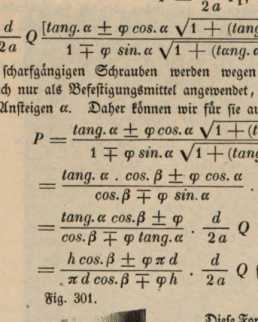 2 a
d/2 a Q [tang. α ± φ cos. α √1 + (tang
1 ∓ φ sin. α √1 + (tang. α
ſcharfgängigen Schrauben werden wegen
ch nur als Befeſtigungsmittel angewendet,
Anſteigen α. Daher können wir für ſie au
P = tang. α ± φ cos. α √1 + (t
1 ∓ φ sin. α √1 + (tang
= tang. α . cos. β ± φ cos. α / cos. β ∓ φ sin. α .
= tang. α cos. β ± φ / cos. β ∓ φ tang. α · d / 2 a Q
= h cos. β ± φ π d / π d cos. β ∓ φ h · d / 2 a Q (
Fig. 301.
Dieſe For